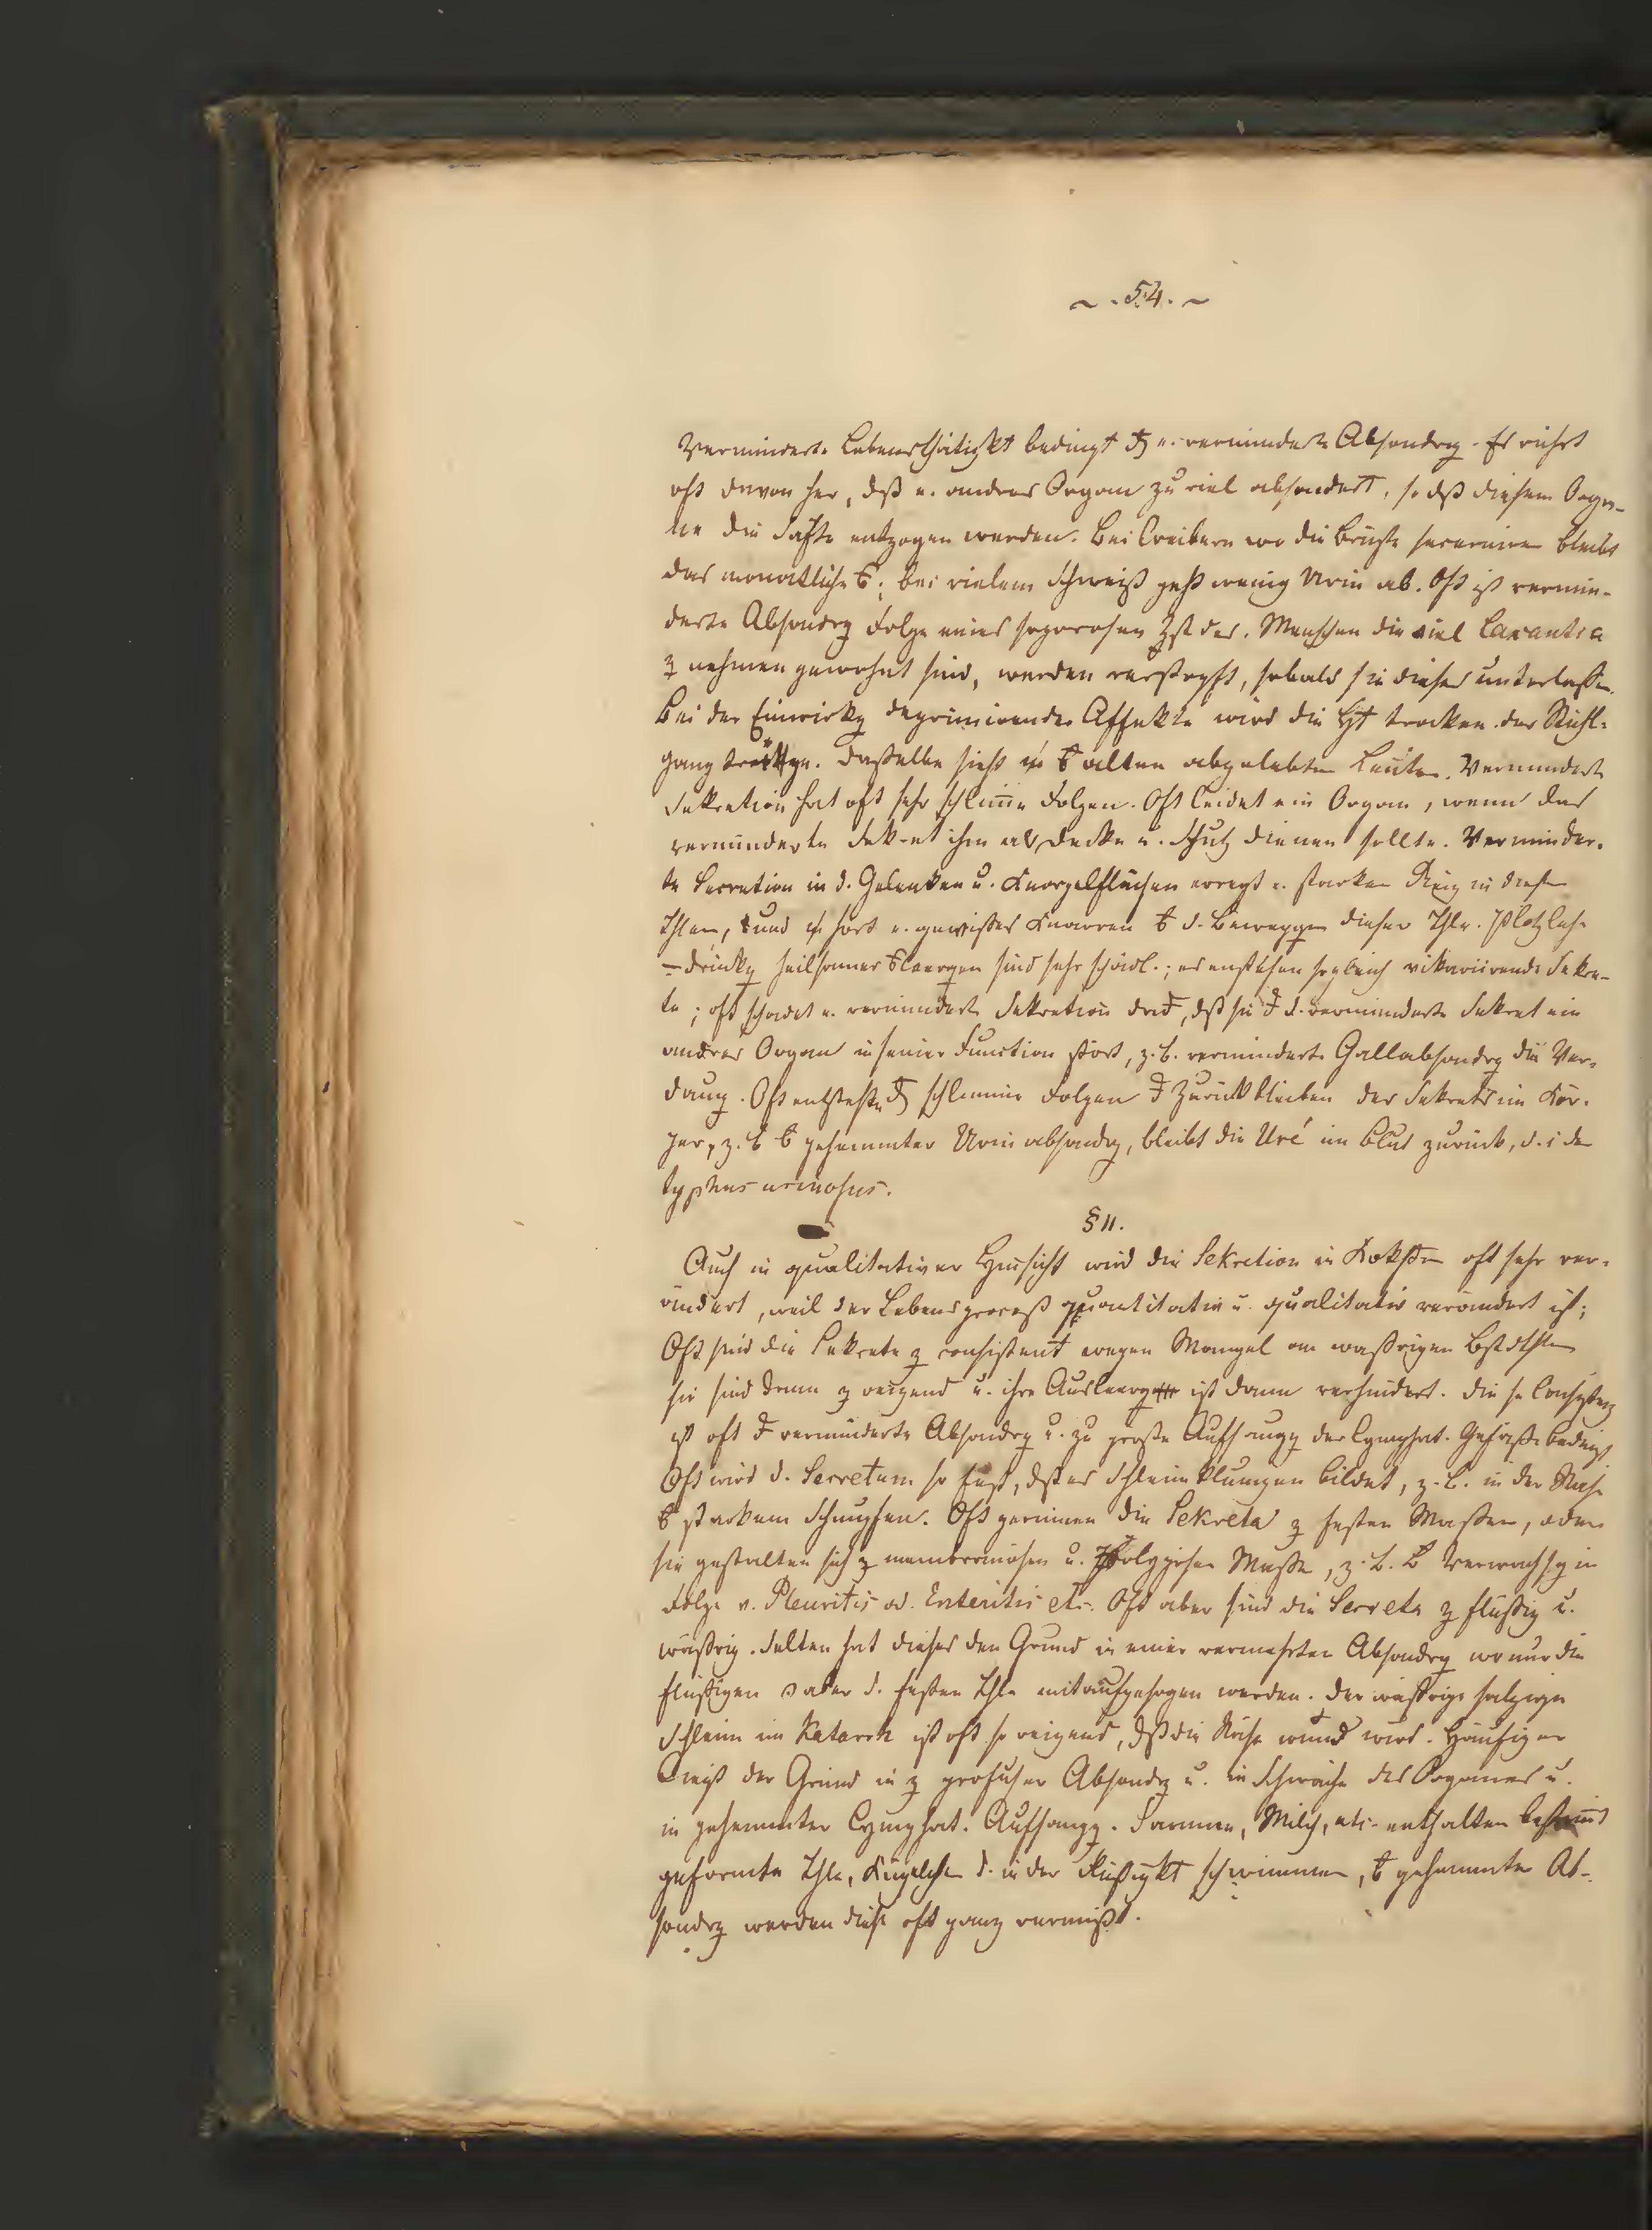 ~ . 54 . ~
Verminderte Lebensthätigkt bedingt u. verminderte Absondrg. Es rührt
oft davon her, dß e. andres Organ zu viel absondert, so dß diesem Orga-
ne die Säfte entzogen werden. Bei Weibern wo die Brüste secerniren bleibt
das monatliche; bei vielem Schweiß geht wenig Urin ab. Oft ist vermin-
derte Absondrg Folge eines soporosen Zstdes. Menschen die viel Laxantia
z nehmen gewohnt sind, werden verstopft, sobald sie dieses unterlaßen.
Bei der Einwirkg deprimirender Affekte wird die Ht trocken der Stuhl-
gang träge. Daßelbe sieht alten abgelebten Leuten. Verminderte
Sekretion hat oft sehr schlime Folgen. Oft leidet ein Organ, wenn das
verminderte Sekret ihm als Decke u. Schutz dienen sollte. Verminder-
te Secretion in d. Gelenken u. Knorpelflächen erregt e. starken Reiz in diesen
Thlen, und hört e. gewißes Knarren d. Beweggen dieser Thle. Plötzliche
-drückg heilsamer sind sehr schädl.; es enstehen sogleich vikariirende Sekre-
te; oft schadet e. verminderte Sekretion, dß sie d. verminderte Sekret ein
andres Organ in seiner Function stört, z. B. verminderte Gallabsondrg die Ver-
daug. Oft entstehen schlimme Folgen Zurückbleiben der Sekrete im Kör-
per, z. B. gehemmter Urinabsondrg, bleibt die Uré im Blut zurück, d. i. der
typhus urinosus.
§ 11.
Auch in qualitativer Hinsicht wird die Sekretion in oft sehr ver-
ändert, weil der Lebensproceß quantitativ u. qualitativ verändert ist;
Oft sind die Sekrete z consistent wegen Mangel an waßrigen Bstdthlen
sie sind dann z reizend u. ihre Ausleerg ist dann verhindert. Die se Consistenz
ist oft verminderte Absondrg u. zu große Aufsaugg der lymphat. Gefäße bedingt
Oft wird d. Secretum so fest, dß es Schleimklumpen bildet, z. B. in der Nase
starkem Schnupfen. Oft gerinnen die Sekreta z festen Maßen, oder
sie gestalten sich z membranösen u. Maße, z. B. Verwachsg in
Folge v. Pleuritis od. Enteritis etc. Oft aber sind die Secreta z flüßig u.
wäßrig. Selten hat dieses den Grund in einer vermehrten Absondrg wo nur die
flüßigen aber d. festen Thle mit aufgesogen werden. Der wäßrige salzige
Schleim im Katarrh ist oft so reizend, dß die Nase wund wird. Häufiger
liegt der Grund in z profuser Absondrg u. in Schwäche des Organes u.
in gehemmter lymphat. Aufsaugg. Saamen, Milch, etc. enthalten bestimt
geformte Thle, Kügelchen d. in der Flüßigkt schwimmen, gehemmter Ab-
sondrg werden diese oft ganz vermißt.